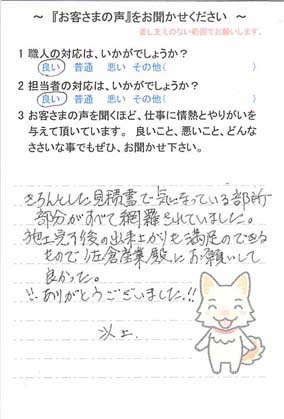 ～ 『お客さまの声』をお聞かせください ～
差し支えのない範囲でお願いします。
1 職人の対応は、いかがでしょうか？
良い 普通 悪い その他( )
2 担当者の対応は、いかがでしょうか？
良い 普通 悪い その他( )
3 お客さまの声を聞くほど、仕事に情熱とやりがいを
与えて頂いています。 良いこと、悪いこと、どんな
ささいな事でもぜひ、お聞かせ下さい。
きちんとした見積書で気になっている部所
部分がすべて網羅されていました。
施工完了後の出来上がりも満足のできる
もので佐倉産業殿にお願いして
良かった。
!!ありがとうございました!!
以上.